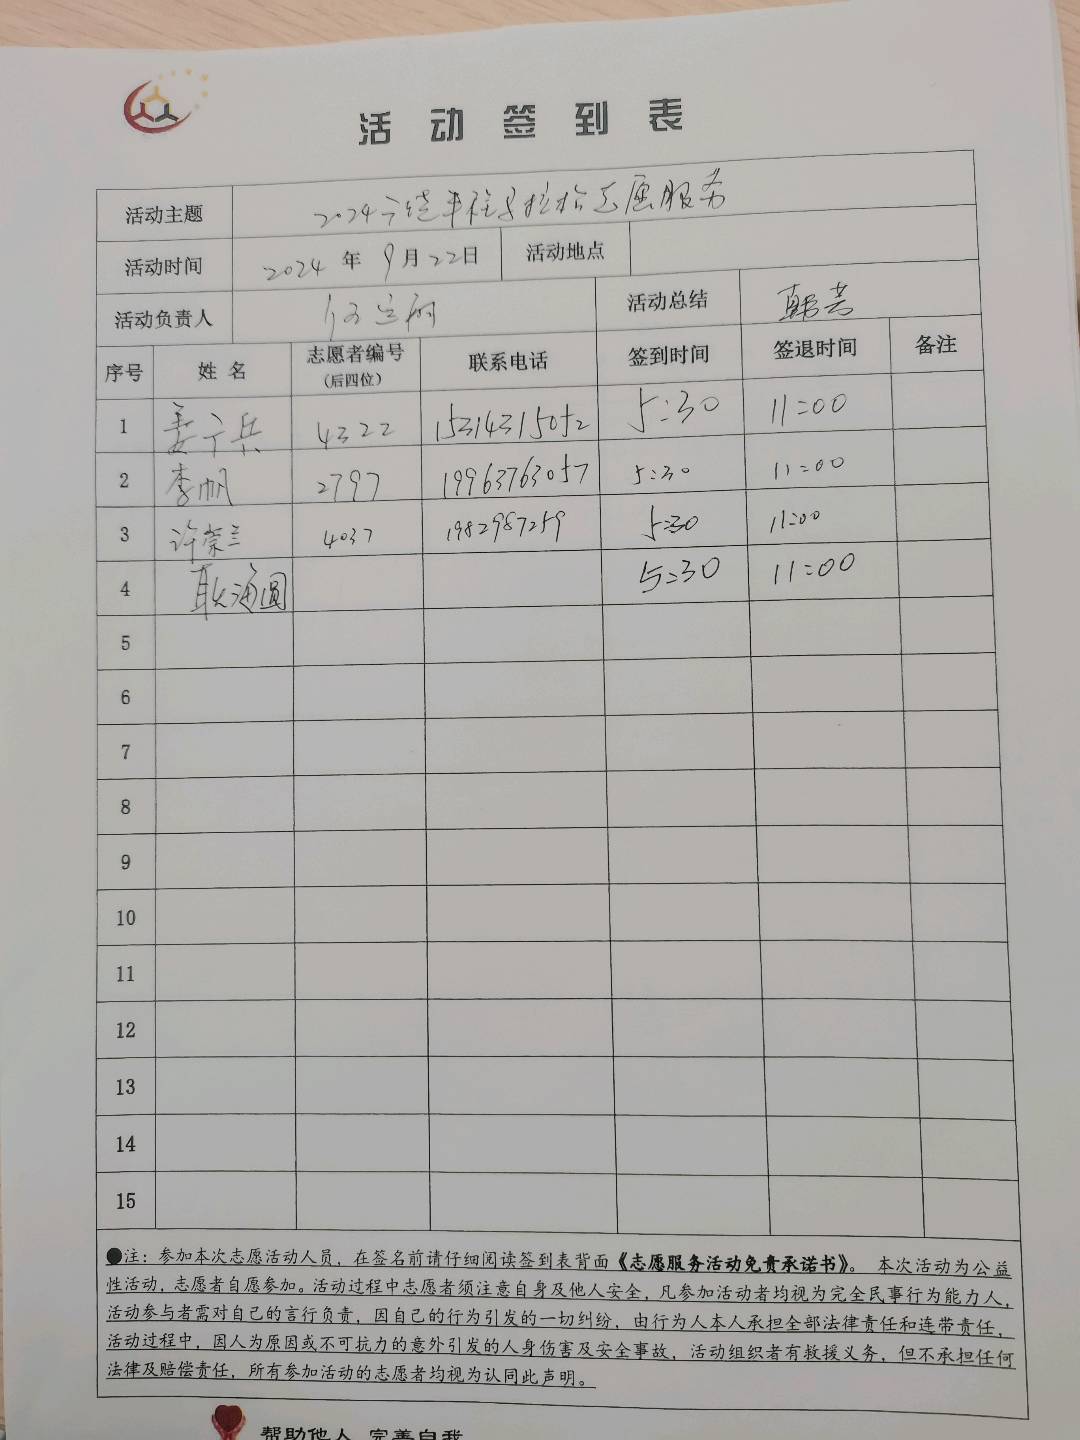 活动签到表
活动主题 2024 志愿服务
活动时间 2024年9月22日 活动地点
活动负责人 活动总结 韩芸
序号 姓名 志愿者编号(后四位) 联系电话 签到时间 签退时间 备注
1 姜广兵 4322 15314315052 5:30 11:00
2 李帆 2797 19963763057 5:30 11:00
3 许荣三 4037 1982987259 5:30 11:00
4 耿海圆 5:30 11:00
5
6
7
8
9
10
11
12
13
14
15
●注：参加本次志愿活动人员，在签名前请仔细阅读签到表背面《志愿服务活动免责承诺书》。 本次活动为公益
性活动，志愿者自愿参加。活动过程中志愿者须注意自身及他人安全，凡参加活动者均视为完全民事行为能力人，
活动参与者需对自己的言行负责，因自己的行为引发的一切纠纷，由行为人本人承担全部法律责任和连带责任，
活动过程中，因人为原因或不可抗力的意外引发的人身伤害及安全事故，活动组织者有救援义务，但不承担任何
法律及赔偿责任，所有参加活动的志愿者均视为认同此声明。
帮助他人 完善自我